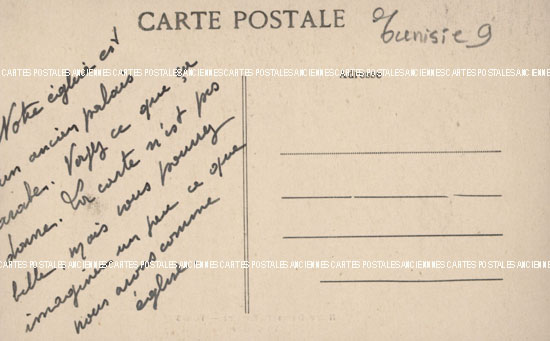 CARTE POSTALE
Tunisie 9
CARTES POSTALES ANCIENNES CARTES POSTALES ANCIENNES CARTES POSTALES ANCIENNES CARTES POSTALES ANCIENNES
Adresse
Notre église est
un ancien palais
arabe. Voyez ce que ça
donne. La carte n'est pas
belle mais vous pourrez
imaginer un peu ce que
nous avons comme
église
CARTES POSTALES ANCIENNES CARTES POSTALES ANCIENNES CARTES POSTALES ANCIENNES CARTES POSTALES ANCIENNES